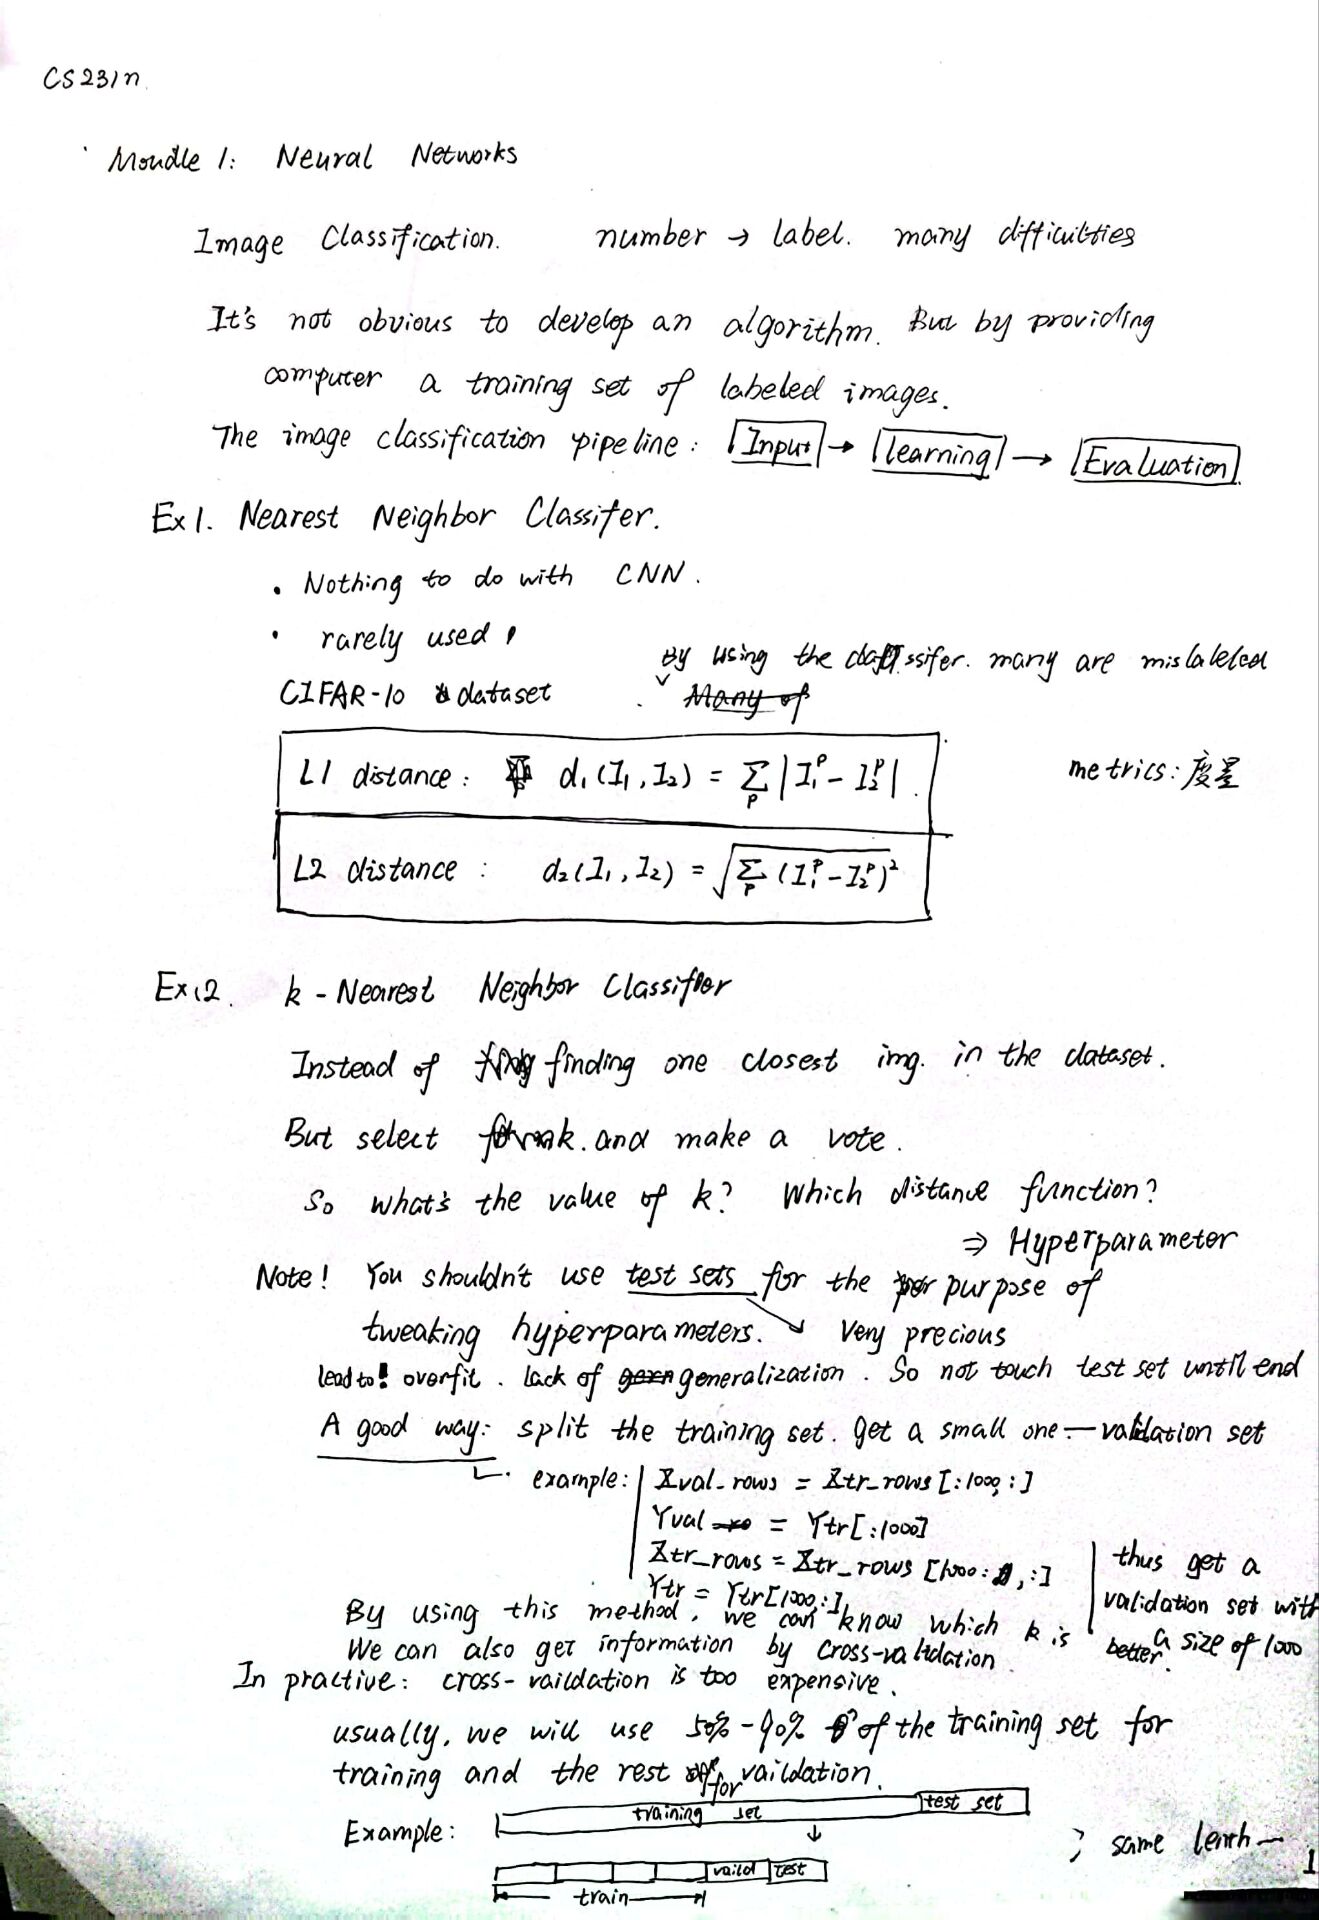 CS231n.
Moudle 1: Neural Networks
Image Classification. number → label. many difficulties
It's not obvious to develop an algorithm. But by providing
computer a training set of labeled images.
The image classification pipeline: Input → learning → Evaluation
Ex1. Nearest Neighbor Classifer.
• Nothing to do with CNN.
• rarely used
By using the classsifer. many are mislaleled
CIFAR-10 dataset . Many of
L1 distance: d₁(I₁, I₂) = Σ_p |I₁^p - I₂^p|.
metrics: 度量
L2 distance: d₂(I₁, I₂) = √Σ_p (I₁^p - I₂^p)²
Ex.2. k-Nearest Neighbor Classifier
Instead of finding one closest img. in the dataset.
But select k. and make a vote.
So what's the value of k? Which distance function?
⇒ Hyperparameter
Note! You shouldn't use test sets for the purpose of
tweaking hyperparameters. → Very precious
lead to! overfit. lack of generalization. So not touch test set until end
A good way: split the training set. get a small one — validation set
example: Xval_rows = Xtr_rows[:1000, :]
Yval = Ytr[:1000]
Xtr_rows = Xtr_rows [1000: , :]
Ytr = Ytr[1000:]
thus get a
validation set with
a size of 1000
By using this method, we can know which k is better.
We can also get information by cross-validation
In practive: cross-vaildation is too expensive.
usually, we will use 50% - 90% of the training set for
training and the rest for vaildation.
training set test set
Example:
; same lenth
vaild test
train
1